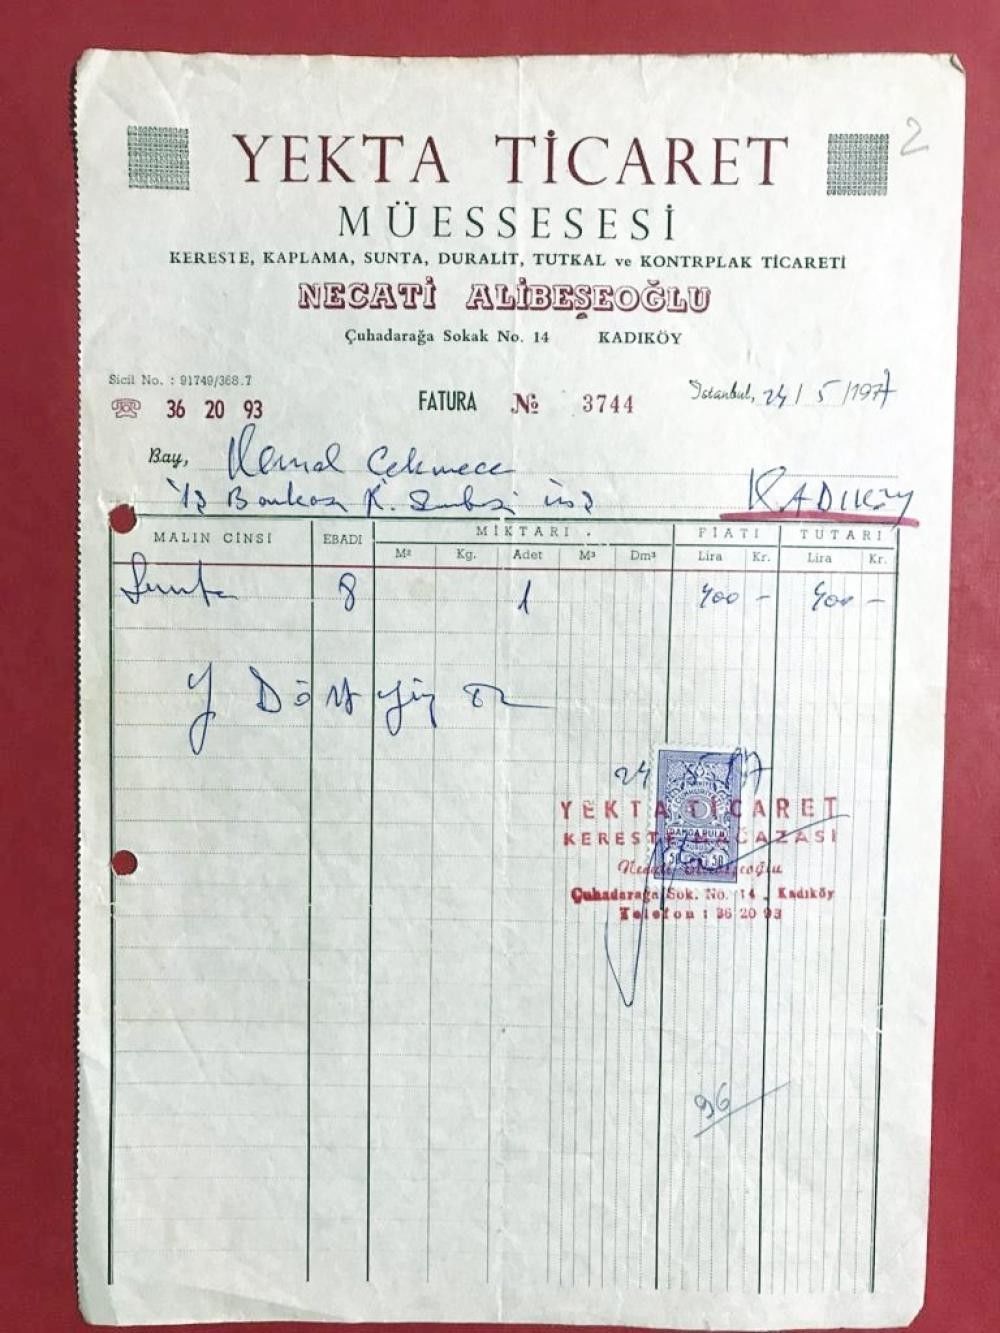 2
YEKTA TİCARET
MÜESSESESİ
KERESTE, KAPLAMA, SUNTA, DURALİT, TUTKAL ve KONTRPLAK TİCARETİ
NECATİ ALİBEŞEOĞLU
Çuhadarağa Sokak No. 14 KADIKÖY
Sicil No. : 91749/368.7
36 20 93
FATURA № 3744
İstanbul, 24 / 5 /1977
Bay, Kemal Çekmece
İş Bankası K. Şubesi üst KADIKÖY
MALIN CİNSİ EBADI MİKTARI FİATI TUTARI
M² Kg. Adet M³ Dm³ Lira Kr. Lira Kr.
Sunta 8 1 400 - 400 -
Y Dörtyüz TL
24 5 977
YEKTA TİCARET
KERESTE MAĞAZASI
Necati Alibeşeoğlu
Çuhadarağa Sok. No. 14 Kadıköy
Telefon : 36 20 93
CUMHURİYETİ
DAMGA PULU
50 50
96